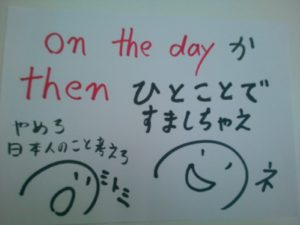 on the day か
then ひとことで
すましちゃえ
やめろ
日本人のこと考えろ
ネ